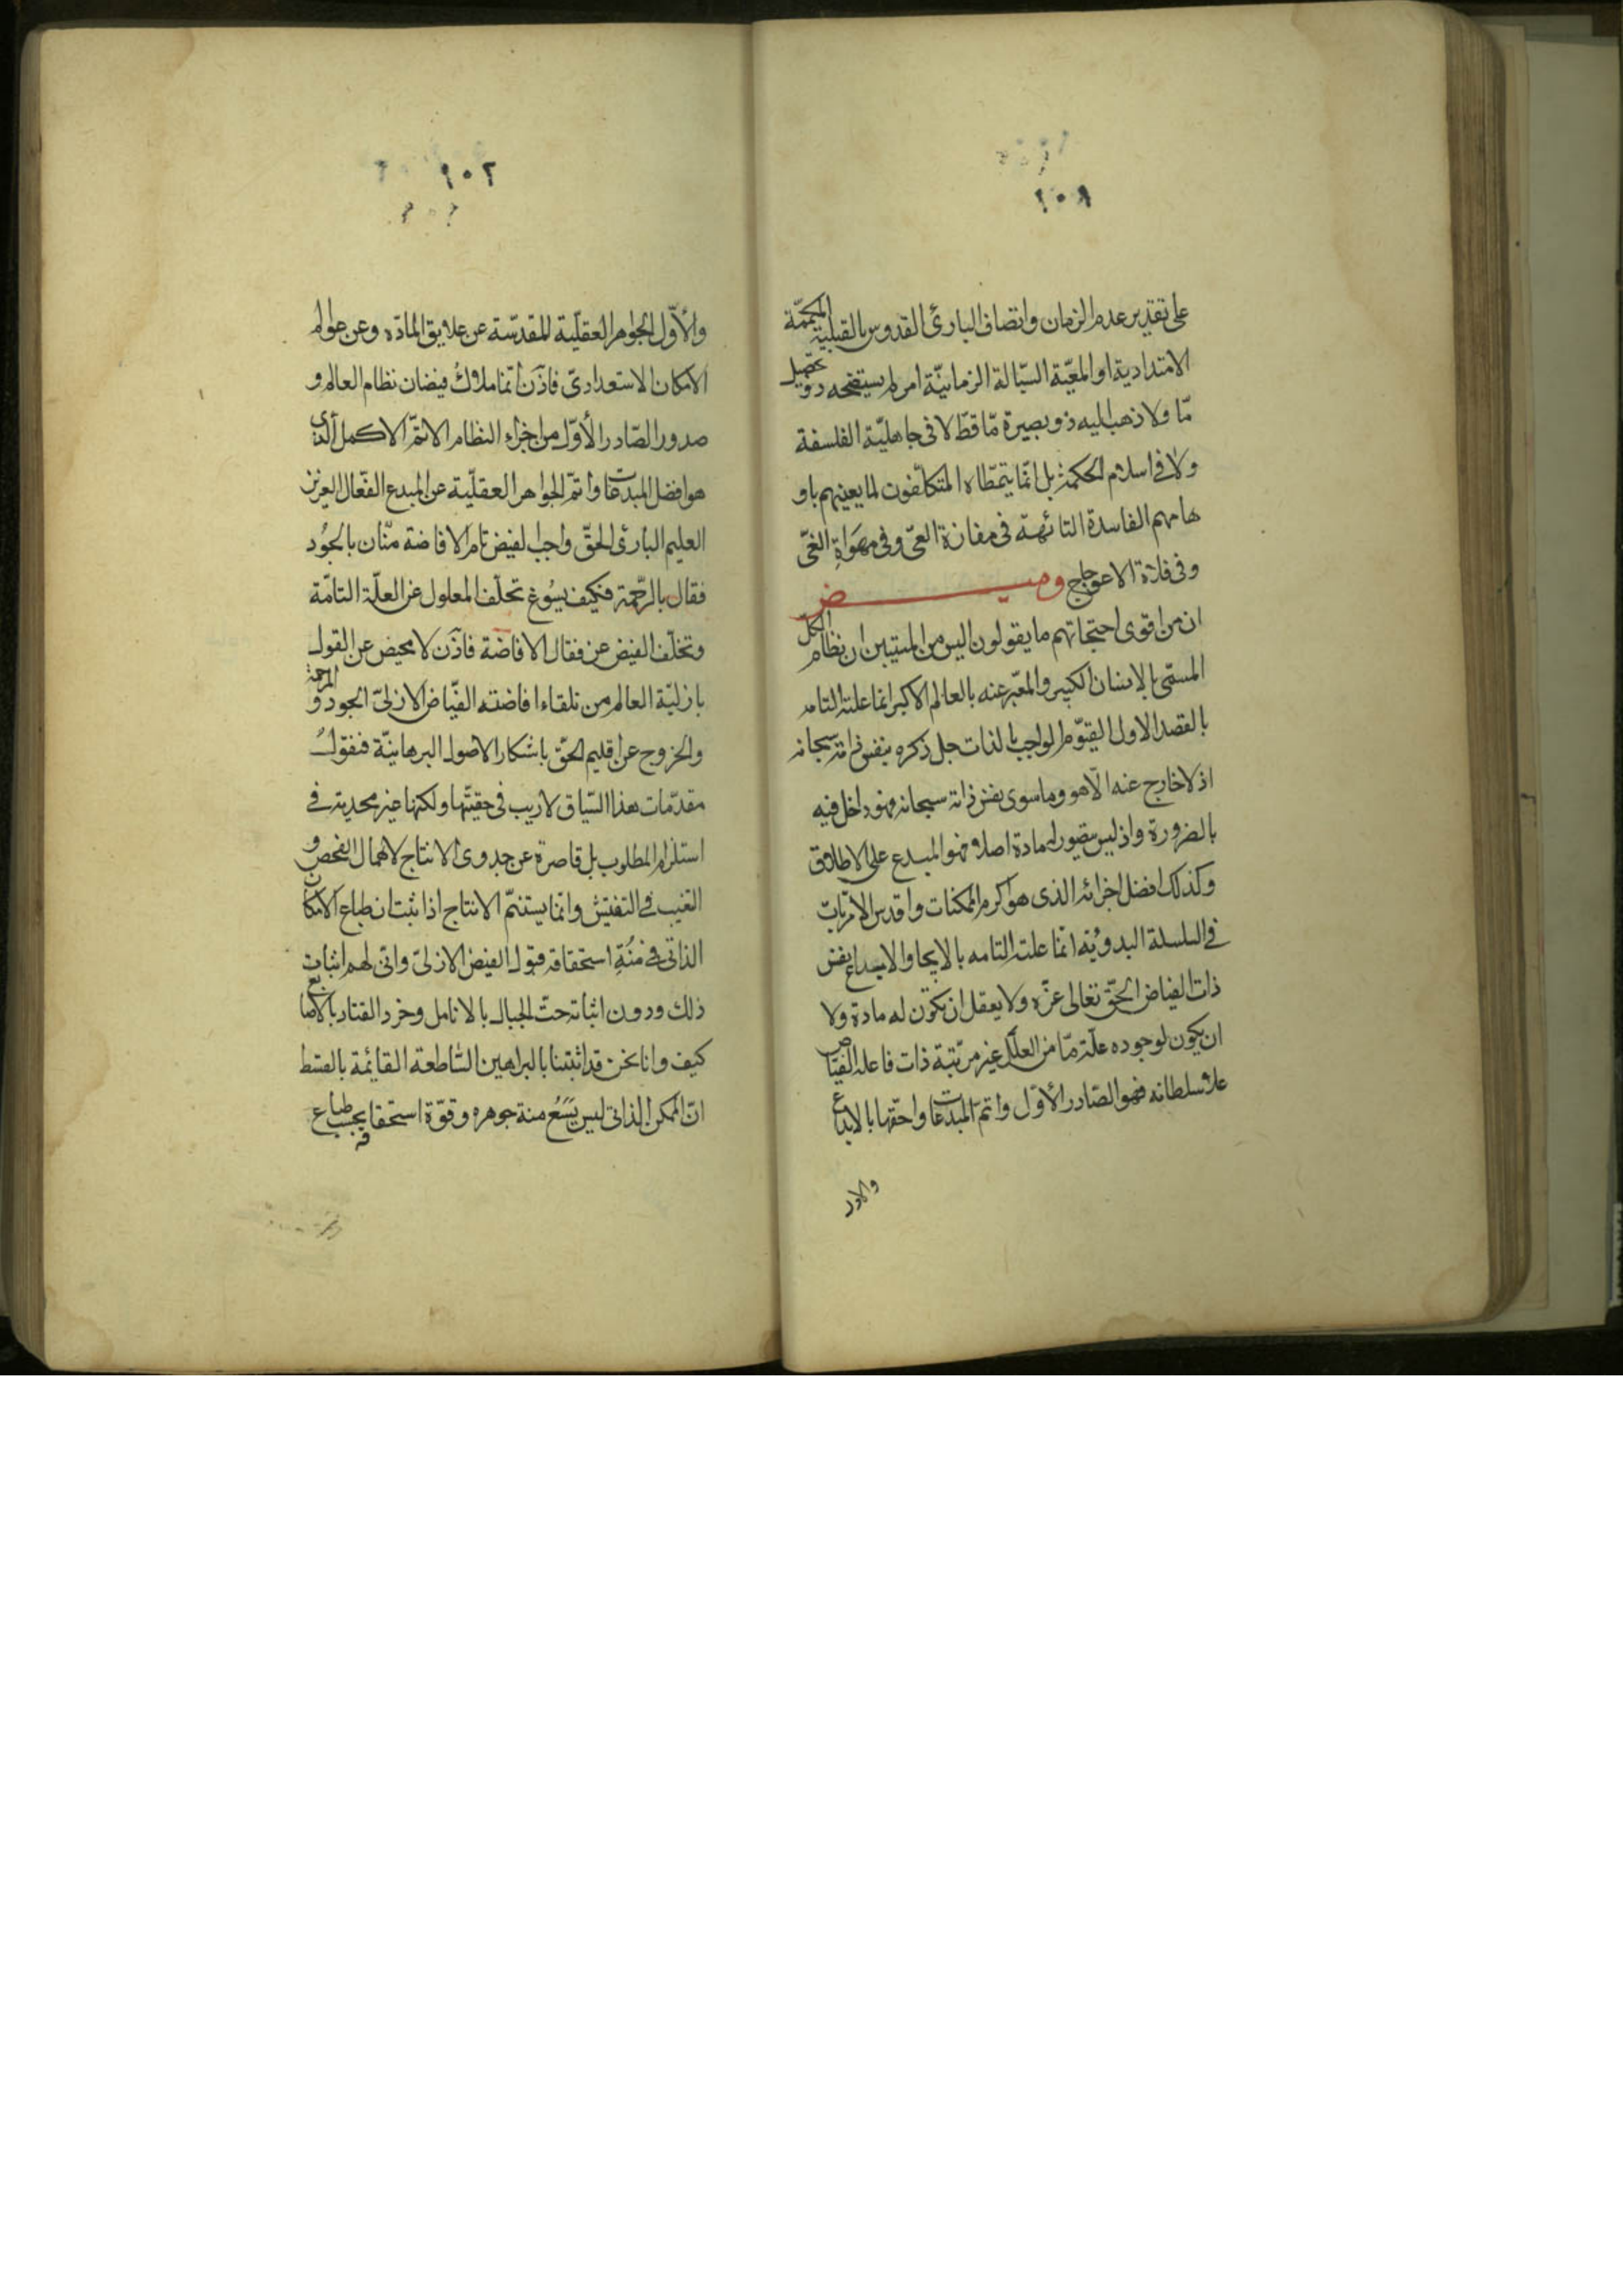 ١٠٨
على تقدير عدم الزمان واتصاف البارئ القدوس بالقبلية المكممّة
الامتدادية او المعيّة السيّالة الزمانيّة امر لم يستصحه ذو تحصيل
مّا ولا ذهب اليه ذو بصيرة مّا قطّ لا فى جاهليّة الفلسفة
ولا فى اسلام الحكمة بل انّما يتمطّاه المتكلّفون لما يعنيهم باو
هامهم الفاسدة التائهة فى مفازة العمى وفى مهواة الغىّ
وفى فلاة الاعوجاج وميـــض
ان من اقوى احتجاجاتهم ما يقولون اليس من المستبين ان نظام الكل
المسمّى بالانسان الكبير والمعبّر عنه بالعالم الاكبر انما علته التامه
بالقصد الاول القيّوم الواجب بالذات جل ذكره بنفس ذاته سبحانه
اذ لا خارج عنه الّا هو وما سوى نفس ذاته سبحانه فهو داخل فيه
بالضرورة واذ ليس يتصور له مادة اصلا فهو المبدع على الاطلاق
وكذلك افضل اجزائه الذى هو اكرم الممكنات واقدس الامريات
فى السلسلة البدوئيه انّما علته التامه بالايجاد والابداع نفس
ذات الفياض الحقّ تعالى عزّه ولا يعقل ان تكون له مادة ولا
ان يكون لوجوده علّة مّا من العلل غير مرتبة ذات فاعله الفيّاض
علا سلطانه فهو الصّادر الأوّل واتمّ المبدعات واحقّها بالابداع
والاول
١٠٢
والأوّل الجواهر العقليّة المقدسّة عن علايق المادّه وعن عوالم
الامكان الاستعدادىّ فاذن انّما ملاك فيضان نظام العالم و
صدور الصّادر الأوّل من اجزاء النظام الاتمّ الاكمل الذى
هو افضل المبدعات واتمّ الجواهر العقليّة عن المبدع الفعّال العزيز
العليم البارئ الحقّ واجب الفيض تامّ الافاضة منّان بالجُود
فعّال بالرّحمة فكيف يسُوغ تخلّف المعلول عن العلّة التامّة
وتخلّف الفيض عن فعّال الافاضة فاذن لا محيص عن القول
بازليّة العالم من تلقاء افاضته الفيّاض الازلىّ الجود و الرحمة
والخروج عن اقليم الحقّ باشكار الاصول البرهانيّة فنقول
مقدّمات هذا السّياق لا ريب فى حقيّتها ولكنها غير مجدية فى
استلزام المطلوب بل قاصرة عن جدوى الانتاج لاهمال الفحص و
التغيب فى التفتيش وانّما يستتمّ الانتاج اذا ثبت ان طباع الامكان
الذاتى فى مُنّةِ استحقاقه قبول الفيض الازلىّ وانّى لهم اثبات
ذلك ودون اثباته حتّ الجبال بالانامل وخرد القتاد بالاصابع
كيف وانا نحن قد اثبتنا بالبراهين السّاطعة القائمة بالقسط
انّ الممكن الذاتى ليس يَسَعُ منة جوهره وقوّة استحقاقه بحسب طباع